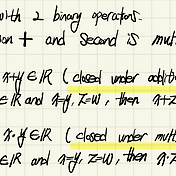 with 2 binary operations.
on + and second is mult
x+y ∈ ℝ (closed under additi
∈ ℝ and x=y, z=w, then x+z
x·y ∈ ℝ (closed under multi
∈ ℝ and x=y, z=w, then x·z